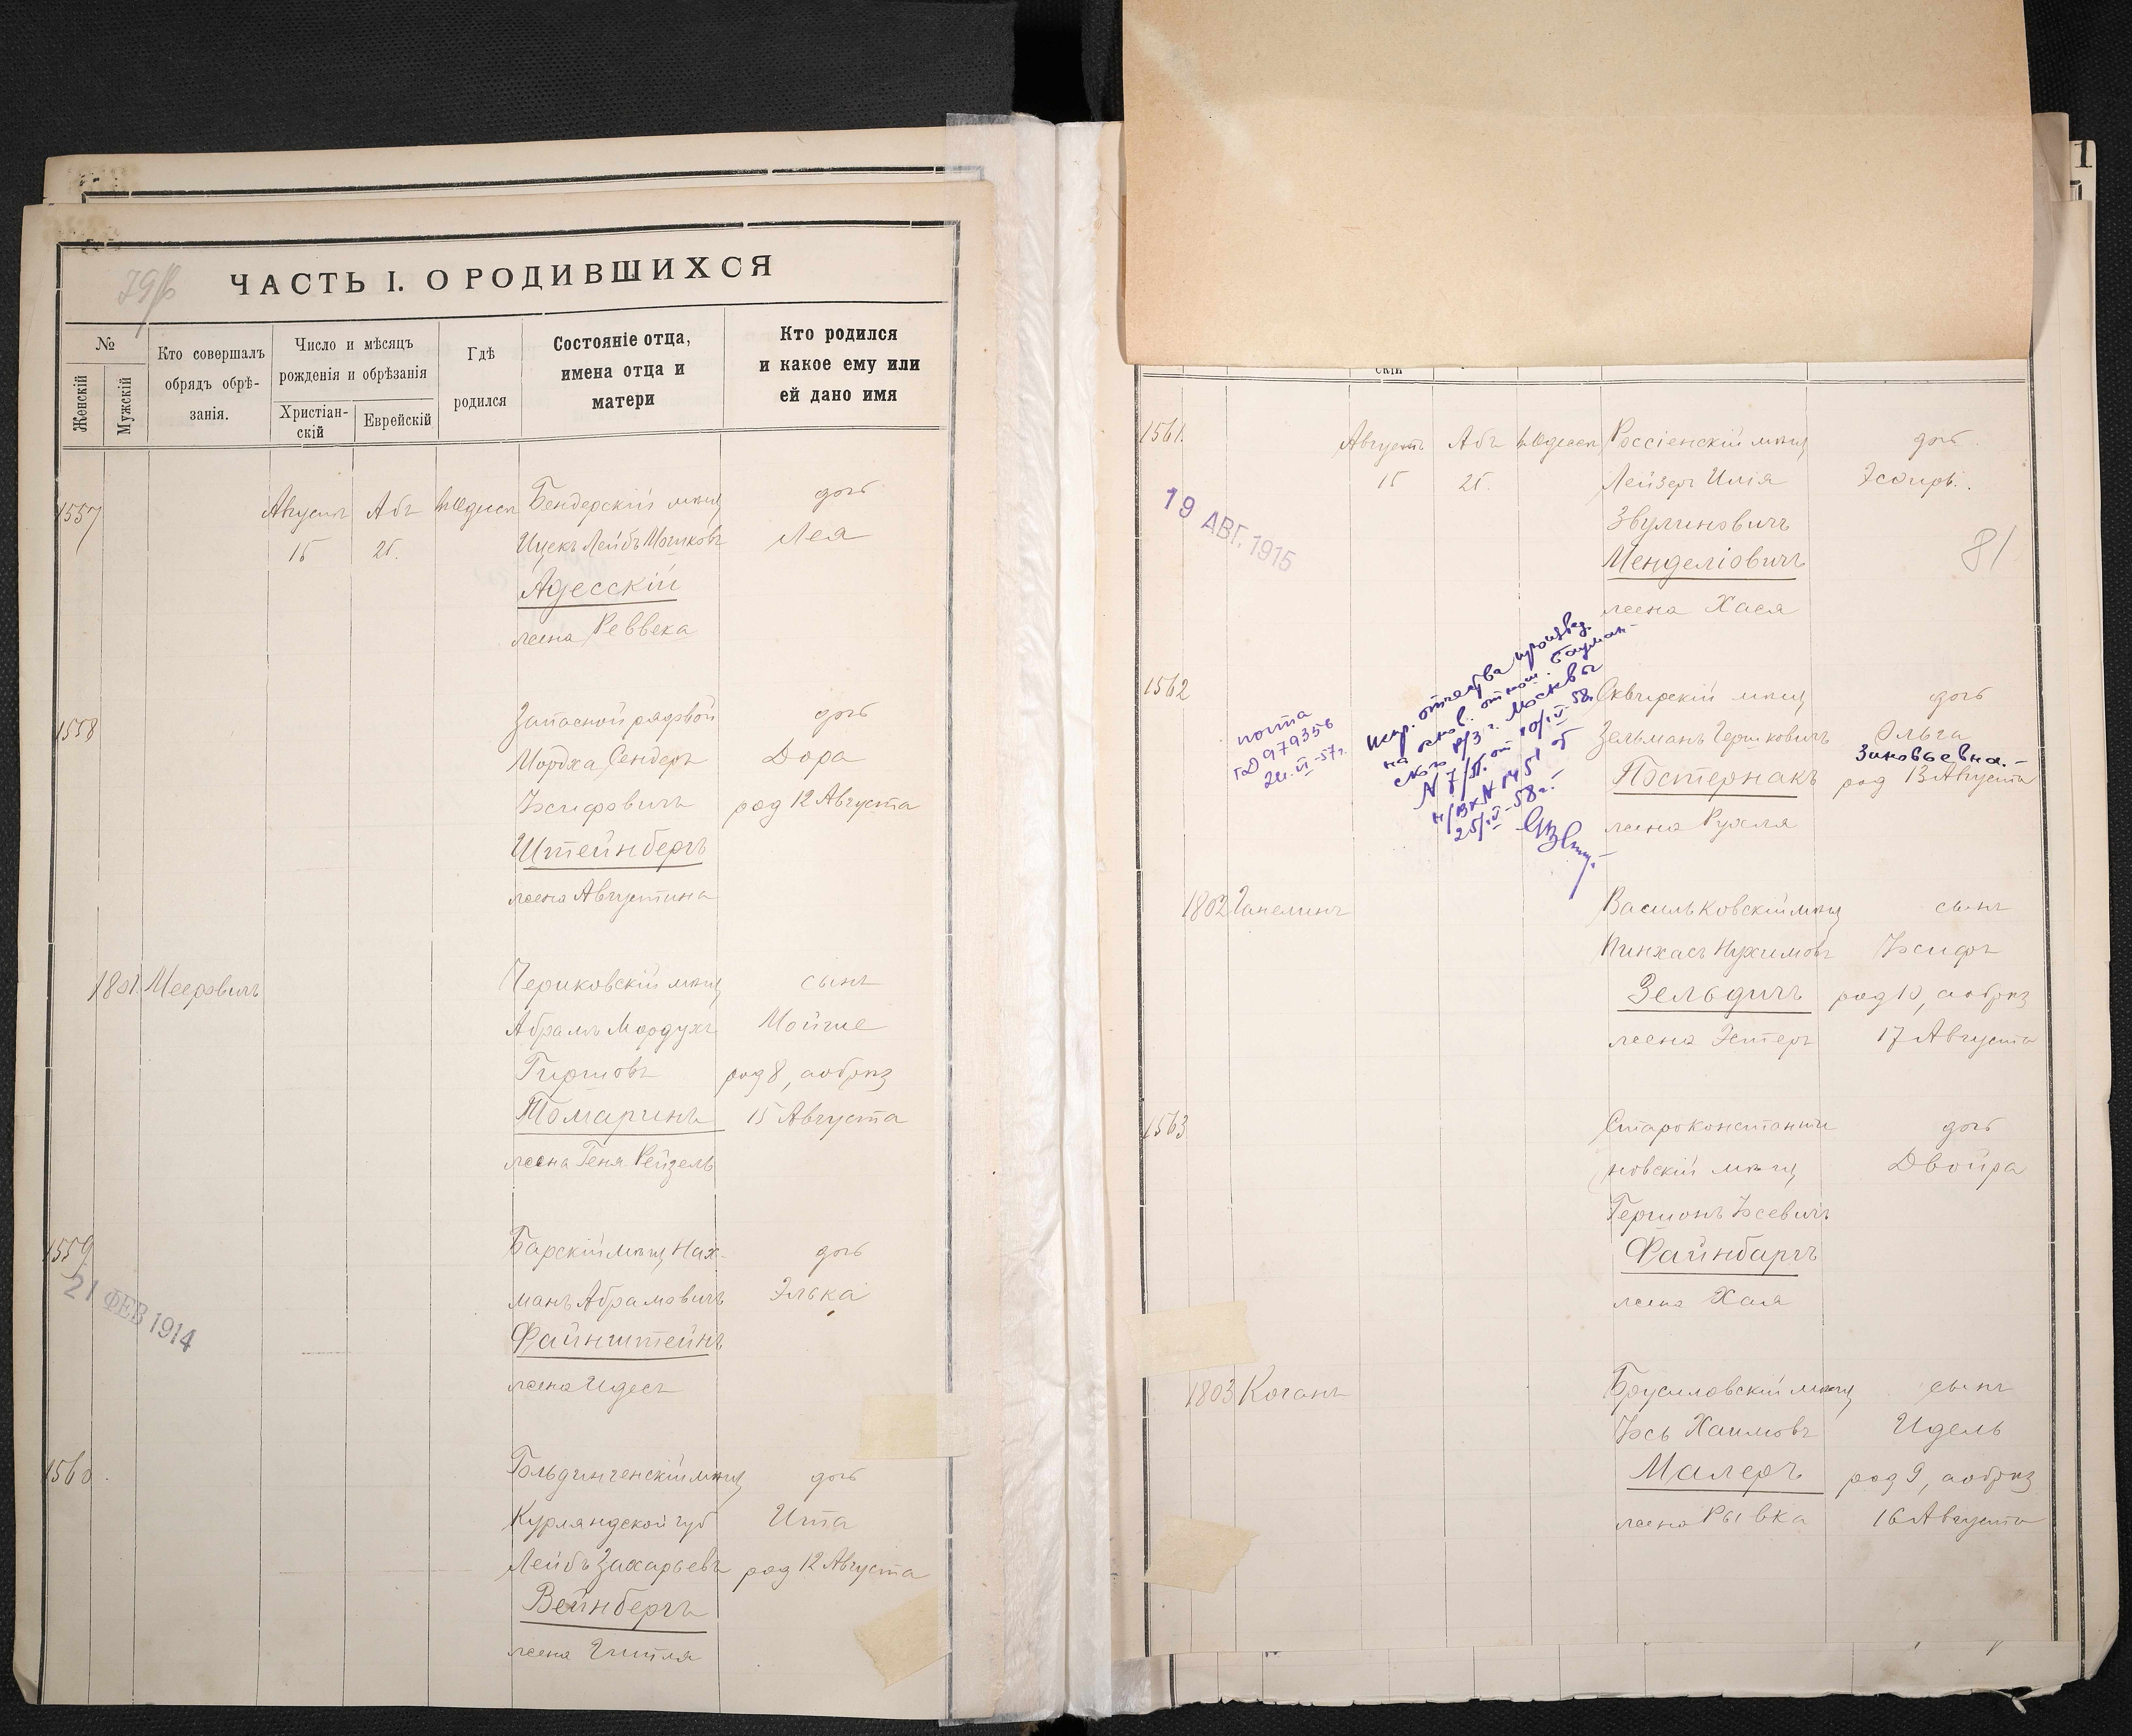 79
ЧАСТЬ I. О РОДИВШИХСЯ
№
Женскій
Мужскій
Кто совершалъ
обрядъ обрѣ-
занія.
Число и мѣсяцъ
рожденія и обрѣзанія
Христіан-
скій
Еврейскій
Гдѣ
родился
Состояніе отца,
имена отца и
матери
Кто родился
и какое ему или
ей дано имя
1557
Августъ
15
Абъ
21.
Бендерскій мѣщ
Ицекъ Лейбъ Мошковъ
Адесскій
жена Реввека
дочь
Лея
1558
Запасной рядовой
Мордха Сендеръ
Іосифовичъ
Штейнбергъ
жена Августина
дочь
Дора
род 12 Августа
1801. Мееровичъ
Чериковскій мѣщ
Абрамъ Мордухъ
Гиршовъ
Томаринъ
жена Геня Рейзель
сынъ
Мойше
род 8, а обрѣз
15 Августа
1559
21 ФЕВ 1914
Барскій мѣщ Нах-
манъ Абрамовичъ
Файнштейнъ
жена Идесъ
дочь
Элька
1560.
Гольдингенскій мѣщ
Курляндской губ
Лейбъ Захарьевъ
Вейнбергъ
жена Гитля
дочь
Ита
род 12 Августа
скій
1561.
19 АВГ. 1915
Августъ
15
Абъ
21.
въ Одессѣ
Россіенскій мѣщ
Лейзеръ Илія
Звулиновичъ
Менделіовичъ
жена Хася
дочь
Эсѳирь.
81
1562
почта
ГД 979356
24.VI-57г.
Испр. отчества произвед.
на основ. отнош. Бауман-
ског р/з г. Москвы
N 7/II. от 10/IV-58.
25/IV-58г.
Сквирскій мѣщ
Зельманъ Гершковичъ
Постернакъ
жена Рухля
дочь
Ольга
Зиновьевна.-
род 13 Августа
1802 Ганелинъ
Васильковскій мѣщ
Пинхасъ Нухимовъ
Зельдичъ
жена Эстеръ
сынъ
Іосифъ
род 10, а обрѣз
17 Августа
1563
Староконстанти
новскій мѣщ
Гершонъ Іосевичъ
Файнбаргъ
жена Хая
дочь
Двойра
1803 Коганъ
Брусиловскій мѣщ
Іось Хаимовъ
Малеръ
жена Рывка
сынъ
Идель
род 9, а обрѣз
16 Августа